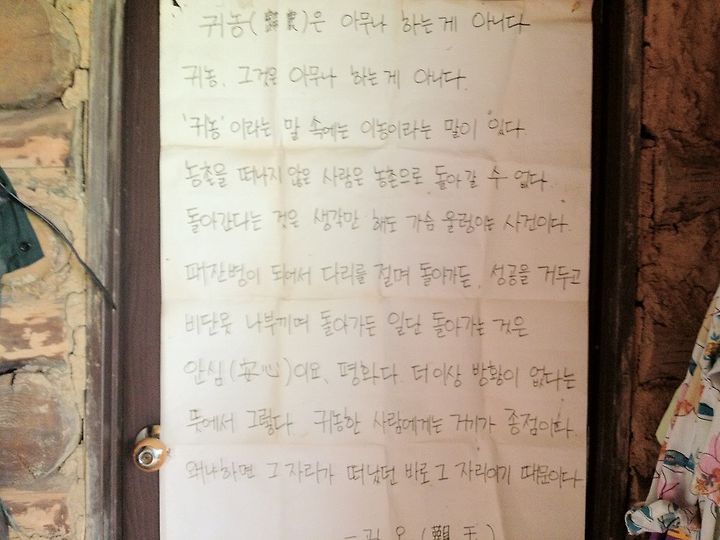 귀농(歸農)은 아무나 하는게 아니다
귀농, 그것은 아무나 하는게 아니다.
'귀농'이라는 말 속에는 이농이라는 말이 있다
농촌을 떠나지 않은 사람은 농촌으로 돌아갈 수 없다.
돌아간다는 것은 생각만 해도 가슴 울렁이는 사건이다.
패잔병이 되어서 다리를 절며 돌아가든, 성공을 거두고
비단옷 나부끼며 돌아가든 일단 돌아가는 것은
안심(安心)이요, 평화다. 더이상 방황이 없다는
뜻에서 그렇다. 귀농한 사람에게는 거기가 종점이다.
왜냐하면 그 자리가 떠났던 바로 그 자리이기 때문이다